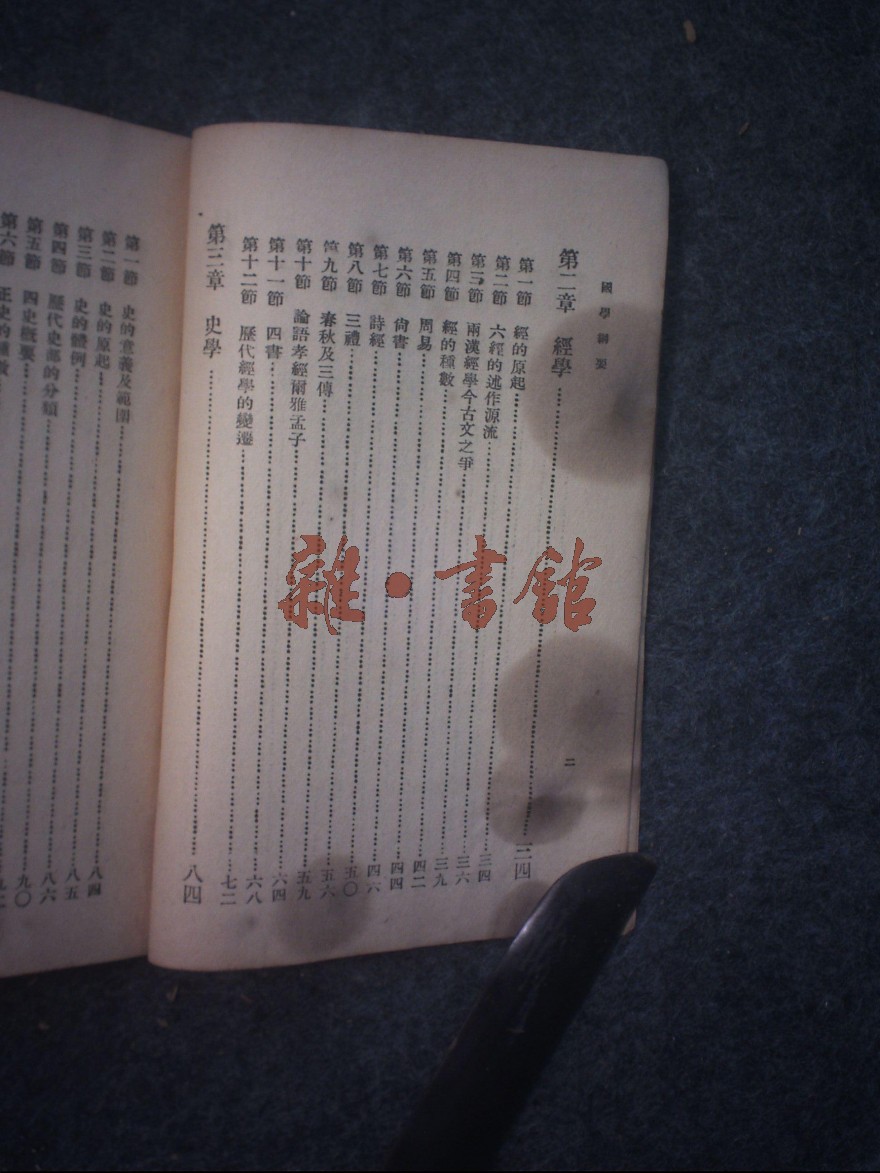 國學
二
第二章 經學……二四
第一節 經的原起……三四
第二節 六經的述作源流……三六
第三節 兩漢經學今古文之爭……三九
第四節 經的種數……四二
第五節 周易……四四
第六節 尙書……四六
第七節 詩經……五〇
第八節 三禮……五六
第九節 春秋及三傳……五九
第十節 論語孝經爾雅孟子……六四
第十一節 四書……六八
第十二節 歷代經學的變遷……七二
第三章 史學……八四
第一節 史的意義及範圍……八四
第二節 史的原起……八五
第三節 史的體例……八六
第四節 歷代史部的分類……九〇
第五節 四史概要……
第六節 正史的種數
雜·書館